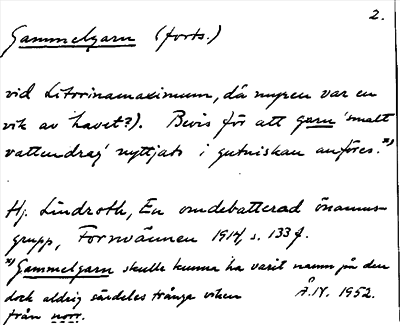 2.
Gammelgarn (forts.)
vid Litorinamaximum, då myren var en
vik av havet?). Bevis för att garn 'smalt
vattendrag' nyttjats i gutniskan anföres.x)
Hj. Lindroth, En omdebatterad önamns-
grupp, Fornvännen 1914, s. 133 f.
x) Gammelgarn skulle kunna ha varit namn på den
dock aldrig särdeles trånga viken Å.N. 1952.
från norr.